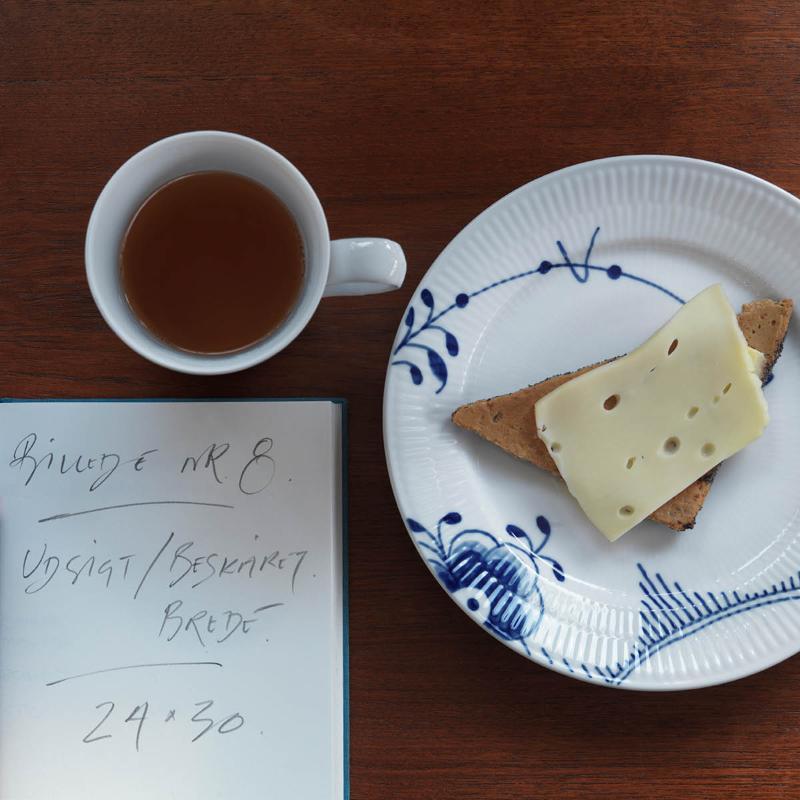 BILLEDE NR. 8.
UDSIGT/BESKÅRET.
BREDE.
24 x 30.